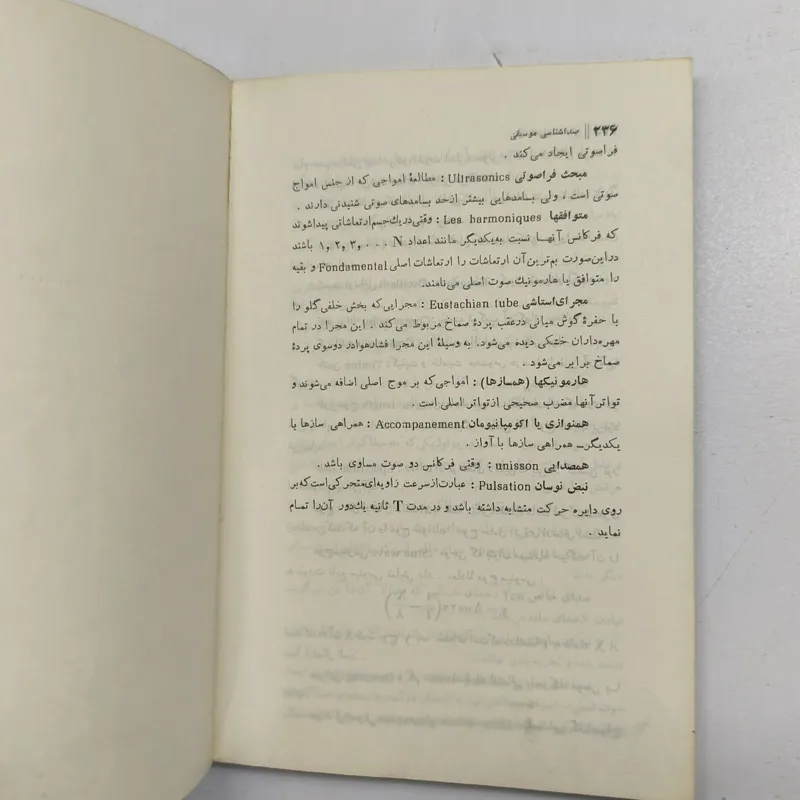 ۲۳۶ || صداشناسی موسیقی
فراصوتی ایجاد می‌کند .
مبحث فراصوتی Ultrasonics : مطالعهٔ امواجی که از جنس امواج
صوتی است ، ولی بسامدهایی بیشتر از حد بسامدهای صوتی شنیدنی دارند .
متوافقها Les harmoniques : وقتی در یك جسم ارتعاشاتی پیدا شوند
که فرکانس آنها نسبت به یکدیگر مانند اعداد N . . . و۳ و۲ و۱ باشند
در این صورت بم‌ترین آن ارتعاشات را ارتعاشات اصلی Fondamental و بقیه
را متوافق یا هارمونیك صوت اصلی می‌نامند.
مجرای استاشی Eustachian tube : مجرایی که بخش خلفی گلو را
با حفرهٔ گوش میانی در عقب پردهٔ صماخ مربوط می‌کند . این مجرا در تمام
مهره‌داران خشکی دیده می‌شود. به وسیلهٔ این مجرا فشار هوا در دوسوی پردهٔ
صماخ برابر می‌شود .
هارمونیکها (همسازها) : امواجی که بر موج اصلی اضافه می‌شوند و
تواتر آنها مضرب صحیحی از تواتر اصلی است .
همنوازی یا اکومپانیومان Accompanement : همراهی سازها با
یکدیگر ــ همراهی سازها با آواز .
همصدایی unisson : وقتی فرکانس دو صوت مساوی باشد .
نبض نوسان Pulsation : عبارت از سرعت زاویه‌ای متحرکی است که بر
روی دایره حرکت متشابه داشته باشد و در مدت T ثانیه یك دور آن را تمام
نماید .